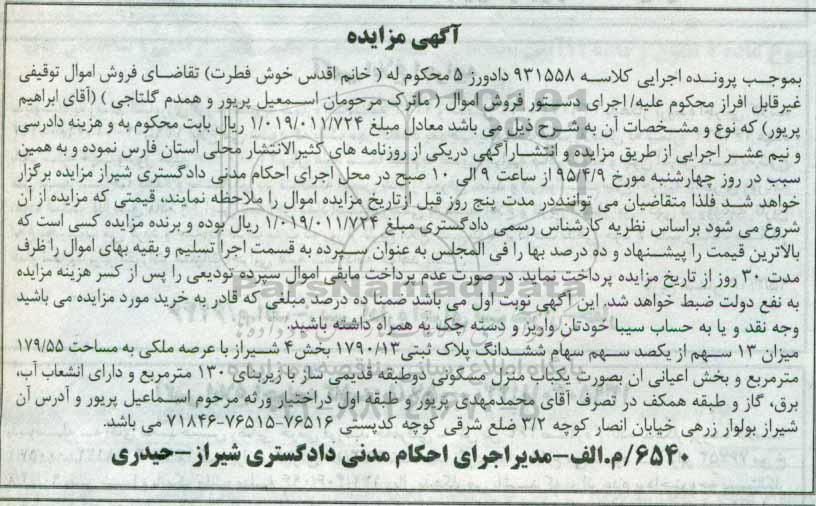 آگهی مزایده
بموجب پرونده اجرایی کلاسه ۹۳۱۵۵۸ دادورز ۵ محکوم له ( خانم اقدس خوش فطرت) تقاضای فروش اموال توقیفی
غیرقابل افراز محکوم علیه/ اجرای دستور فروش اموال ( ماترک مرحومان اسمعیل پرپور و همدم گلتاجی ) (آقای ابراهیم
پرپور) که نوع و مشخصات آن به شرح ذیل می باشد معادل مبلغ ۱/۰۱۹/۰۱۱/۷۲۴ ریال بابت محکوم به و هزینه دادرسی
و نیم عشر اجرایی از طریق مزایده و انتشار آگهی دریکی از روزنامه های کثیرالانتشار محلی استان فارس نموده و به همین
سبب در روز چهارشنبه مورخ ۹۵/۴/۹ از ساعت ۹ الی ۱۰ صبح در محل اجرای احکام مدنی دادگستری شیراز مزایده برگزار
خواهد شد فلذا متقاضیان می تواننددر مدت پنج روز قبل ازتاریخ مزایده اموال را ملاحظه نمایند، قیمتی که مزایده از آن
شروع می شود براساس نظریه کارشناس رسمی دادگستری مبلغ ۱/۰۱۹/۰۱۱/۷۲۴ ریال بوده و برنده مزایده کسی است که
بالاترین قیمت را پیشنهاد و ده درصد بها را فی المجلس به عنوان سپرده به قسمت اجرا تسلیم و بقیه بهای اموال را ظرف
مدت ۳۰ روز از تاریخ مزایده پرداخت نماید. در صورت عدم پرداخت مابقی اموال سپرده تودیعی را پس از کسر هزینه مزایده
به نفع دولت ضبط خواهد شد. این آگهی نوبت اول می باشد ضمنا ده درصد مبلغی که قادر به خرید مورد مزایده می باشید
وجه نقد و یا به حساب سیبا خودتان واریز و دسته چک به همراه داشته باشید.
میزان ۱۳ سهم از یکصد سهم سهام ششدانگ پلاک ثبتی ۱۷۹۰/۱۳ بخش ۴ شیراز با عرصه ملکی به مساحت ۱۷۹/۵۵
مترمربع و بخش اعیانی آن بصورت یکباب منزل مسکونی دوطبقه قدیمی ساز با زیربنای ۱۳۰ مترمربع و دارای انشعاب آب،
برق، گاز و طبقه همکف در تصرف آقای محمدمهدی پرپور و طبقه اول دراختیار ورثه مرحوم اسماعیل پرپور و آدرس آن
شیراز بولوار زرهی خیابان انصار کوچه ۳/۲ ضلع شرقی کوچه کدپستی ۷۶۵۱۶-۷۶۵۱۵-۷۱۸۴۶ می باشد.
۶۵۴۰/م.الف-مدیراجرای احکام مدنی دادگستری شیراز-حیدری
ParsNamadData